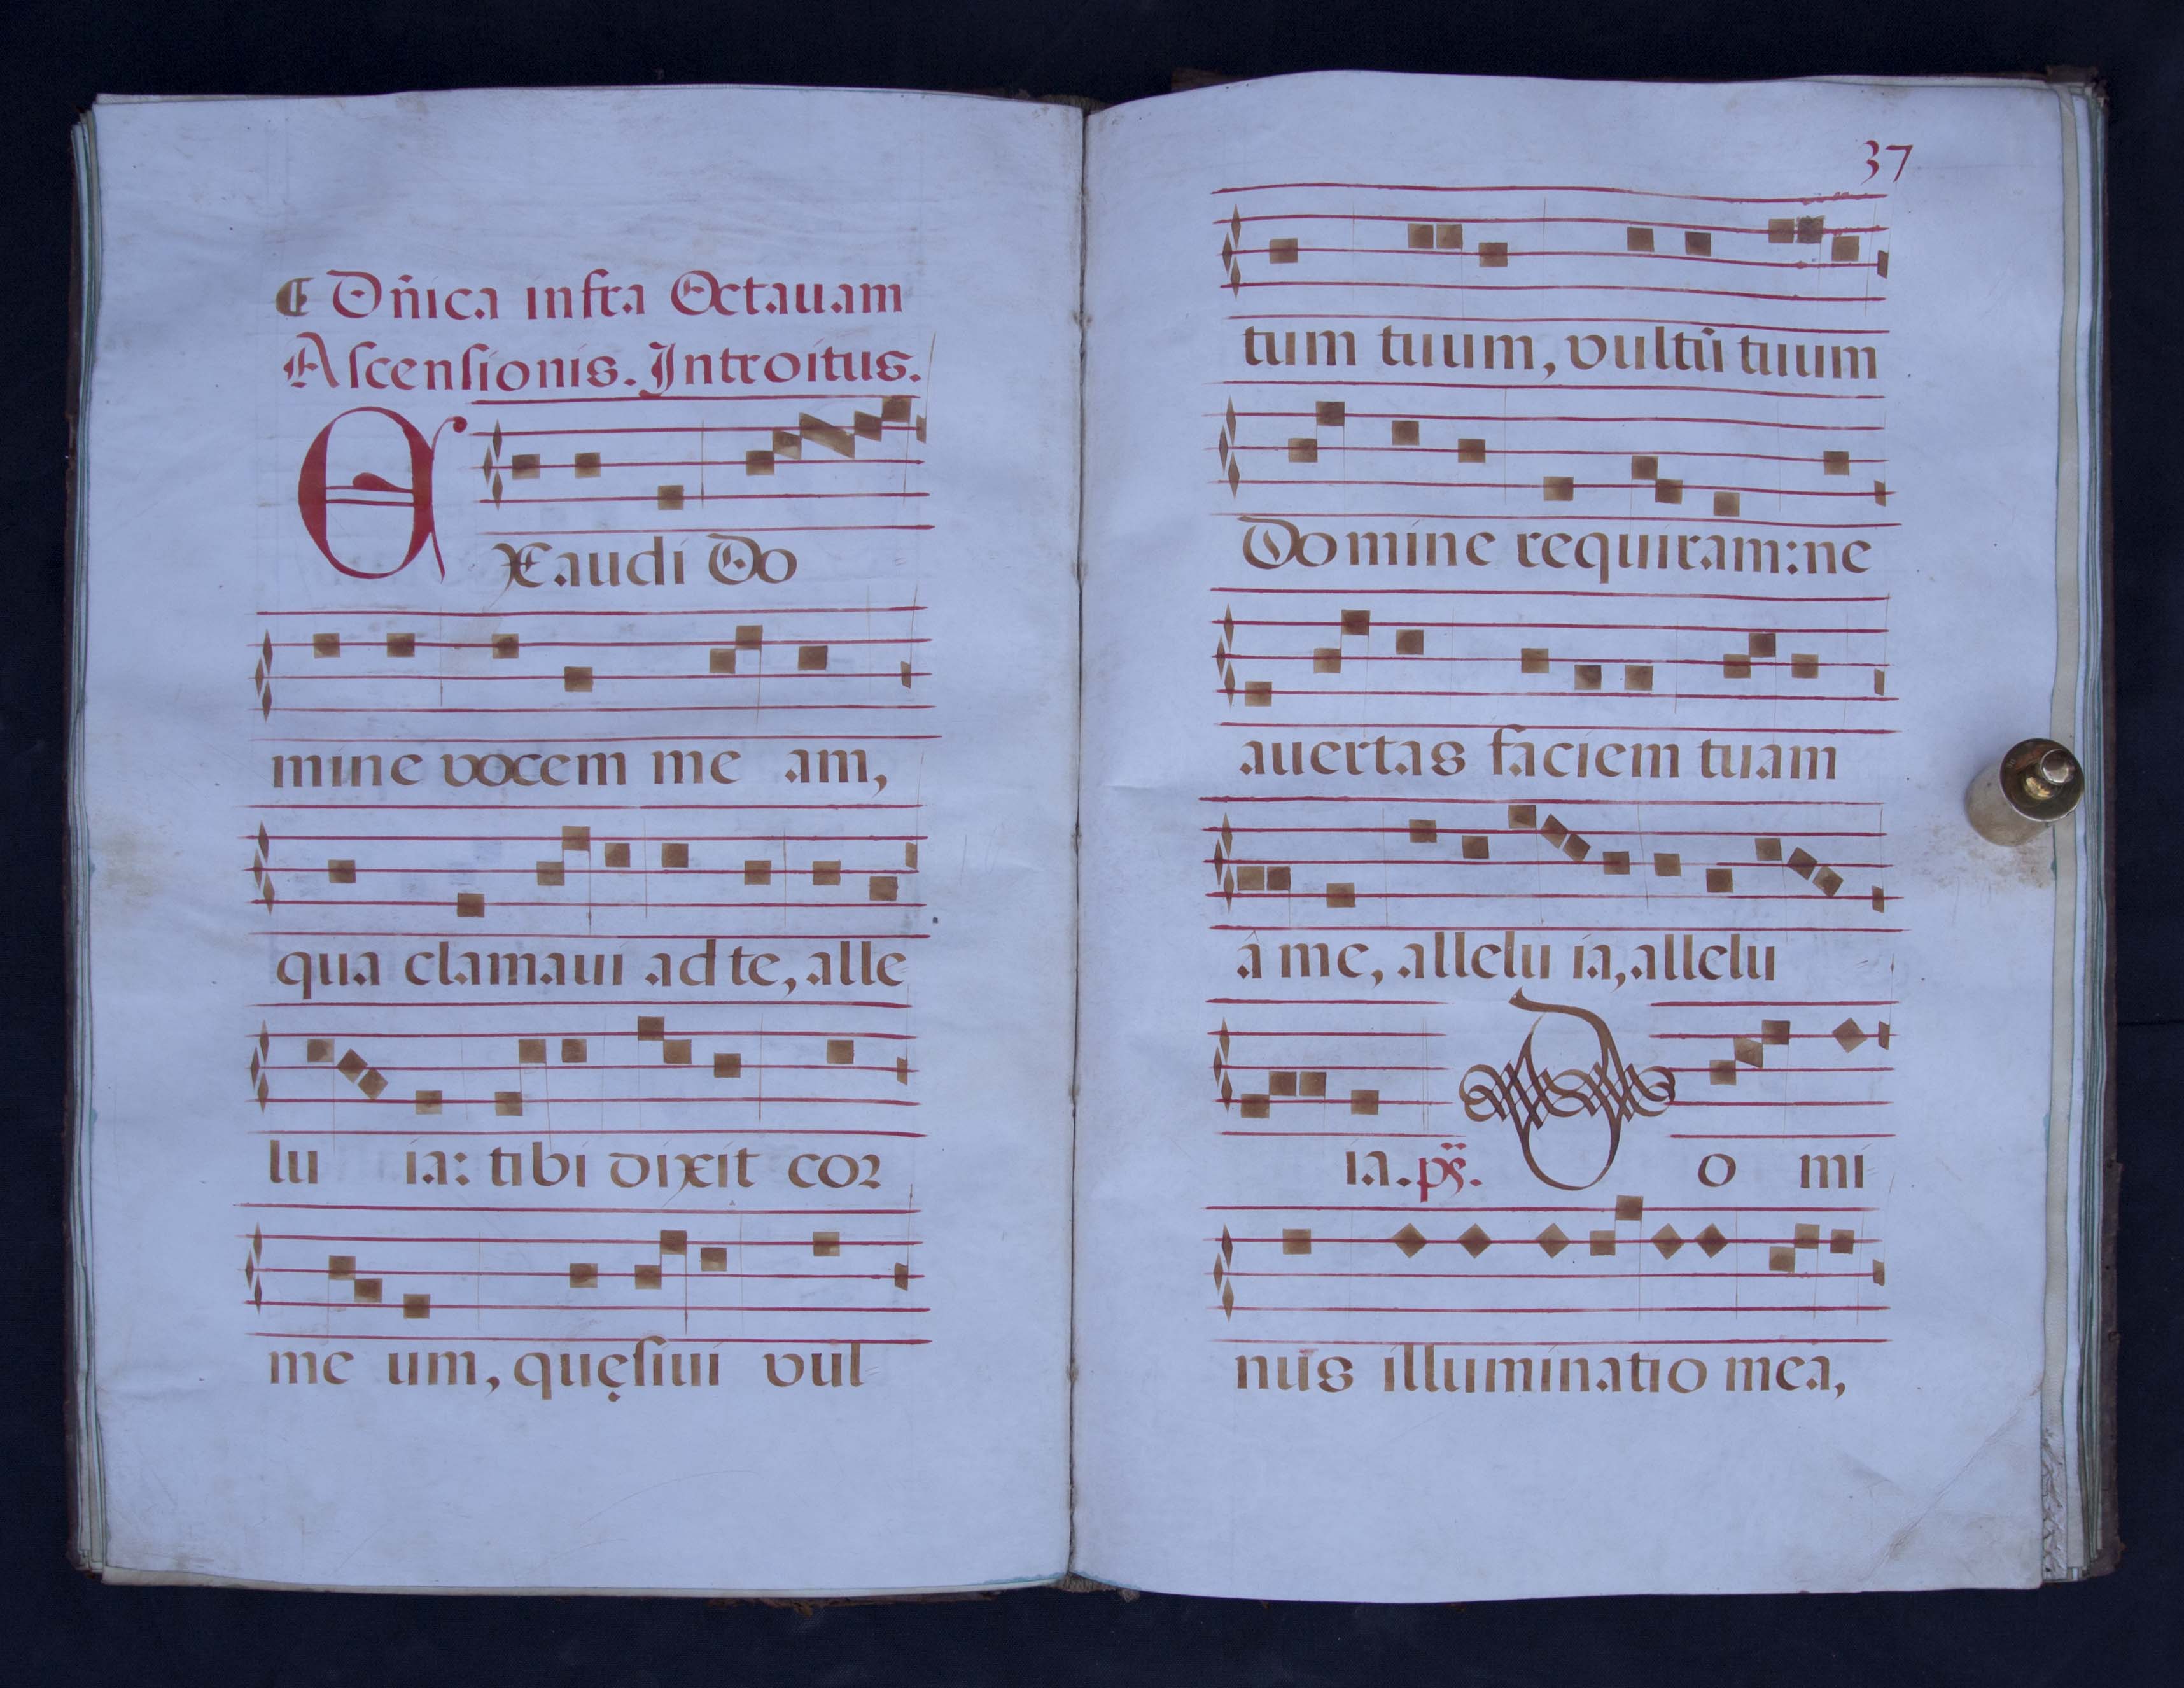 Dñica infra Octauam
Ascensionis. Introitus.
EXaudi Do
mine vocem me am,
qua clamaui ad te, alle
lu ia: tibi dixit cor
me um, quęsiui vul
37
tum tuum, vultū tuum
Domine requiram: ne
auertas faciem tuam
à me, allelu ia, allelu
ia. ps. Do mi
nus illuminatio mea,